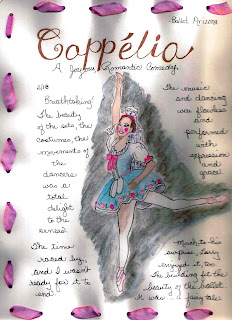 Ballet Arizona
Coppélia
A Joyous, Romantic Comedy
2/18
Breathtaking!
The beauty
of the sets, the
costumes, the
movements of
the
dancers
was a
total
delight
to the
senses!
The time
raced by,
and I wasn't
ready for it to
end.
The music
and dancing
was flawless
and
performed
with
expression
and
grace.
Much to his
surprise, Larry
enjoyed it, too.
The building fit the
beauty of the ballet.
It was a fairy tale